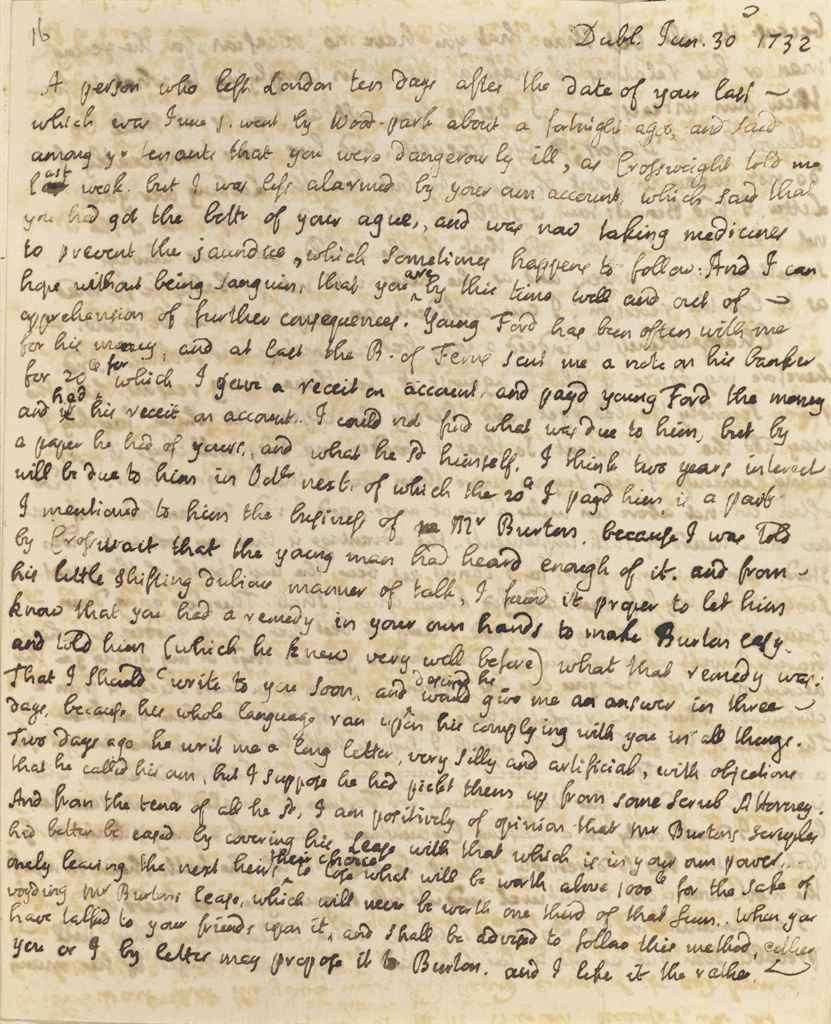 16
Dubl. Jun. 30th 1732
A person who left London ten days after the date of your last
which was June 1. went by Wood-park about a fortnight ago, and said
among yr tenants that you were dangerously ill, as Crossweight told me
last week. but I was less alarmed by your own account, which said that
you had got the bettr of your ague, and was now taking medicines
to prevent the jaundice, which sometimes happens to follow. And I can
hope without being sanguin, that you are by this time well and out of
apprehension of further consequences. Young Ford has been often with me
for his money, and at last the B. of Ferns sent me a note on his banker
for 20ll for which I gave a receit on account, and payd young Ford the money
and had his receit on account. I could not find what was due to him, but by
a paper he had of yours, and what he sd himself, I think two years interest
will be due to him in Octbr next, of which the 20ll I payd him is a part
I mentioned to him the business of Mr Burton, because I was told
by Crosswait that the young man had heard enough of it. and from
his little shifting dubious manner of talk, I found it proper to let him
know that you had a remedy in your own hands to make Burton easy.
and told him (which he knew very well before) what that remedy was:
That I should write to you soon, and desired he would give me an answer in three
days, because his whole language ran upon his complying with you in all things.
Two days ago he writ me a long letter, very silly and artificial, with objections
that he called his own, but I suppose he had pickt them up from some scrub Attorney.
And from the tenor of all he sd, I am positively of opinion that Mr Burtons scruples
had better be eased by covering his Lease with that which is in your own power,
onely leaving the next heirs their choice to lose what will be worth above 1000ll for the sake of
voyding Mr Burtons lease, which will never be worth one third of that sum. When you
have talked to your friends upon it, and shall be advised to follow this method, either
you or I by letter may propose it to Burton. and I like it the rather